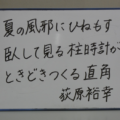 夏の風邪にひねもす
臥して見る柱時計が
ときどきつくる直角
荻原裕幸